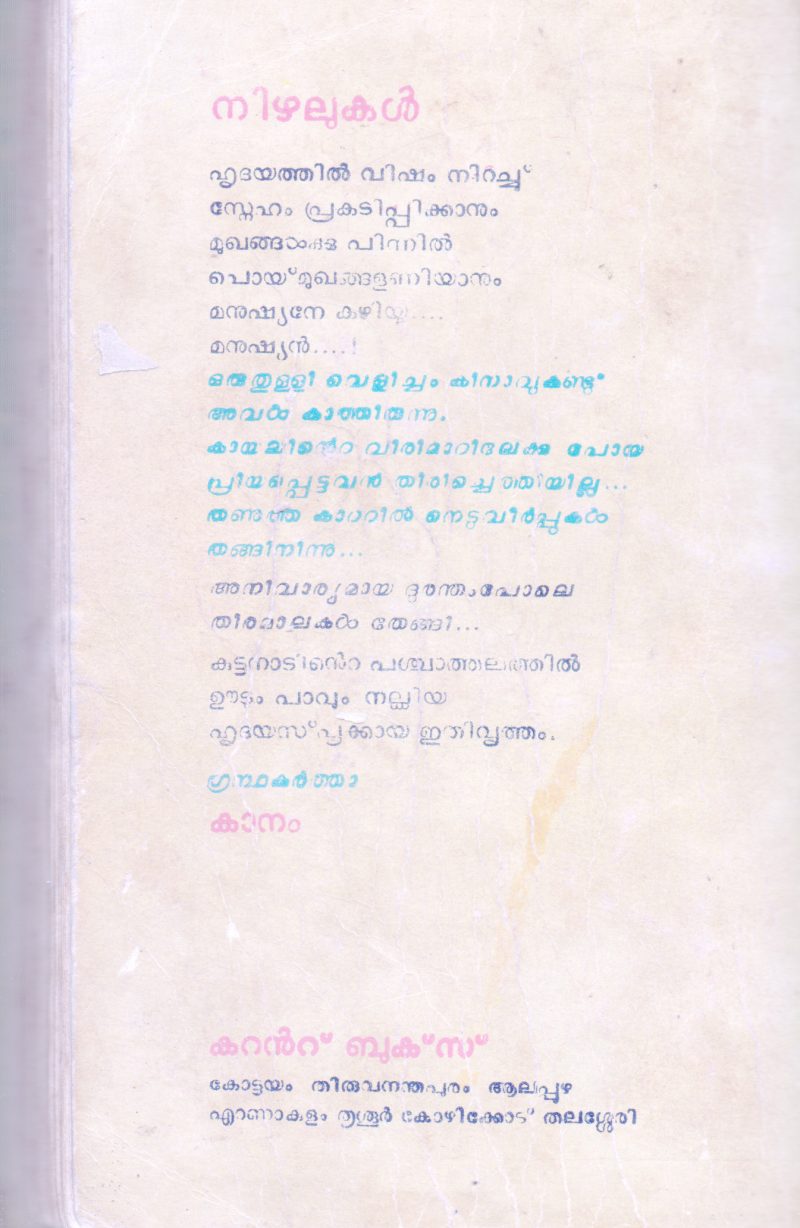 നിഴലുകൾ
ഹൃദയത്തിൽ വിഷം നിറച്ച്
സ്നേഹം പ്രകടിപ്പിക്കാനും
മുഖങ്ങൾക്കു പിന്നിൽ
പൊയ്മുഖങ്ങളണിയാനും
മനുഷ്യനേ കഴിയൂ....
മനുഷ്യൻ....!
ഒരുതുള്ളി വെളിച്ചം കിനാവുകണ്ടു്
അവൾ കാത്തിരുന്നു.
കായലിൻെറ വിരിമാറിലേക്കു പോയ
പ്രിയപ്പെട്ടവൻ തിരിച്ചെത്തിയില്ല...
തണുത്ത കാററിൽ നെടുവീർപ്പുകൾ
തങ്ങിനിന്നു...
അനിവാര്യമായ ദുരന്തംപോലെ
തിരമാലകൾ തേങ്ങി...
കുട്ടനാടിൻെറ പശ്ചാത്തലത്തിൽ
ഊടും പാവും നല്കിയ
ഹൃദയസ്പൃക്കായ ഇതിവൃത്തം.
ഗ്രന്ഥകർത്താ
കാനം
കറൻറ് ബുക്സ്
കോട്ടയം തിരുവനന്തപുരം ആലപ്പുഴ
എറണാകുളം തൃശൂർ കോഴിക്കോട് തലശ്ശേരി